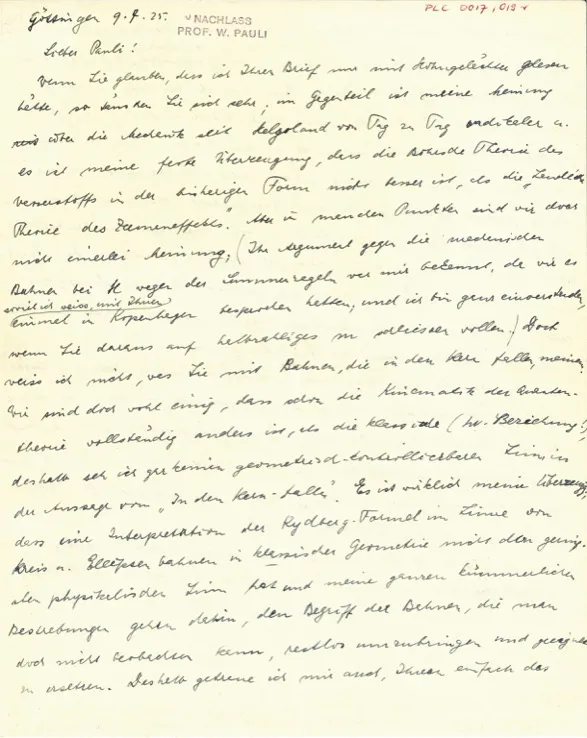 PLC 0017, 019 r
Göttingen 9.7.25.
NACHLASS
PROF. W. PAULI
Lieber Pauli!
Wenn Sie glauben, dass ich Ihren Brief nur mit Hohngelächter gelesen
hätte, so täuschen Sie sich sehr; im Gegenteil ist meine Meinung
über die Mechanik seit Helgoland von Tag zu Tag radikaler u.
es ist meine feste Überzeugung, dass die Bohrsche Theorie des
Wasserstoffs in der bisherigen Form nicht besser ist, als die „Landésche
Theorie des Zeemaneffekts". Aber in manchen Punkten sind wir doch
nicht einerlei Meinung; (Ihr Argument gegen die mechanischen
Bahnen bei H wegen der Summenregeln war mir bekannt, da wir es
soviel ich weiss, mit Ihnen
einmal in Kopenhagen besprochen hatten; und ich bin ganz einverstanden,
wenn Sie daraus auf halbzahliges m schliessen wollen.) Doch
weiss ich nicht, was Sie mit Bahnen, die in den Kern fallen, meinen.
Wir sind doch wohl einig, dass schon die Kinematik der Quanten-
theorie vollständig anders ist, als die klassische (hν-Beziehung!),
deshalb seh ich gar keinen geometrisch-kontrollierbaren Sinn in
der Aussage vom „In den Kern-fallen". Es ist wirklich meine Überzeugung,
dass eine Interpretation der Rydberg-Formel im Sinne von
Kreis u. Ellipsenbahnen in klassischer Geometrie nicht den geringsten
physikalischen Sinn hat und meine ganzen kümmerlichen
Bestrebungen gehen dahin, den Begriff der Bahnen, die man
doch nicht beobachten kann, restlos umzubringen und geeignet
zu ersetzen. Deshalb getraue ich mir auch, Ihnen einfach das